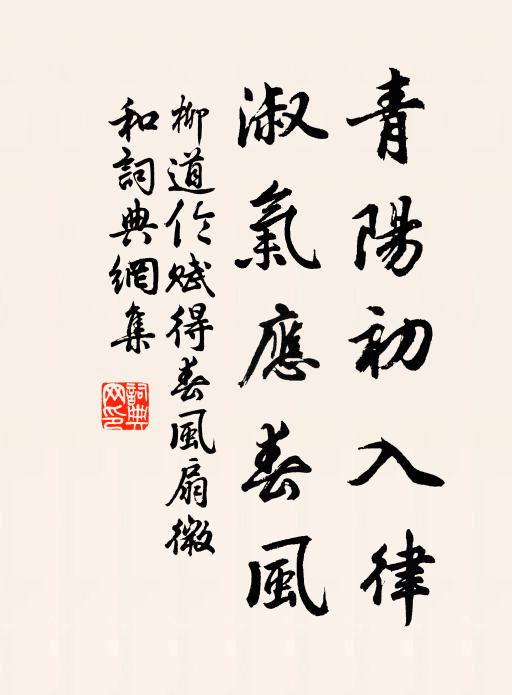 青陽初入律
淑氣應春風
柳道倫賦得春風扇微
和詞典網集
詞典網印